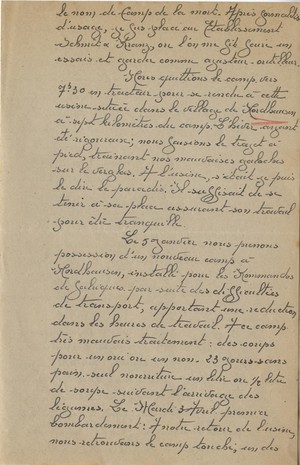 le nom de Camp de la mort. Après formalités
d'usage, je fus placé au Etablissement
Schmit & Kranz, ou l'on me fit faire un
essai et garder comme ajusteur-outilleur.
Nous quittions le camp vers
7h30 en tracteur pour se rendre à cette
usine située dans le village de Nordhausen
à sept kilomètres du camp. L'hiver ayant
été rigoureux; nous faisions le trajet à
pieds, trainant nos mauvaises galoches
sur le verglas. A l'usine, c'était je puis
le dire le paradis. Il suffisait de se
tenir à sa place assurant son travail
pour être tranquille.
Le 5 janvier nous prenons
possession d'un nouveau camp à
Nordhausen, installé pour les Kommandos
de fabriques, par suite des difficultés
de transport, apportant une réduction
dans les heures de travail. A ce camp
très mauvais traitement: des coups
pour un oui ou un non. 23 jours sans
pain, seul nourriture un litre ou 1/2 litre
de soupe suivant l'arrivage des
légumes. Le Mardi 3 Avril premier
bombardement: A notre retour de l'usine,
nous retrouvons le camp touché, un des